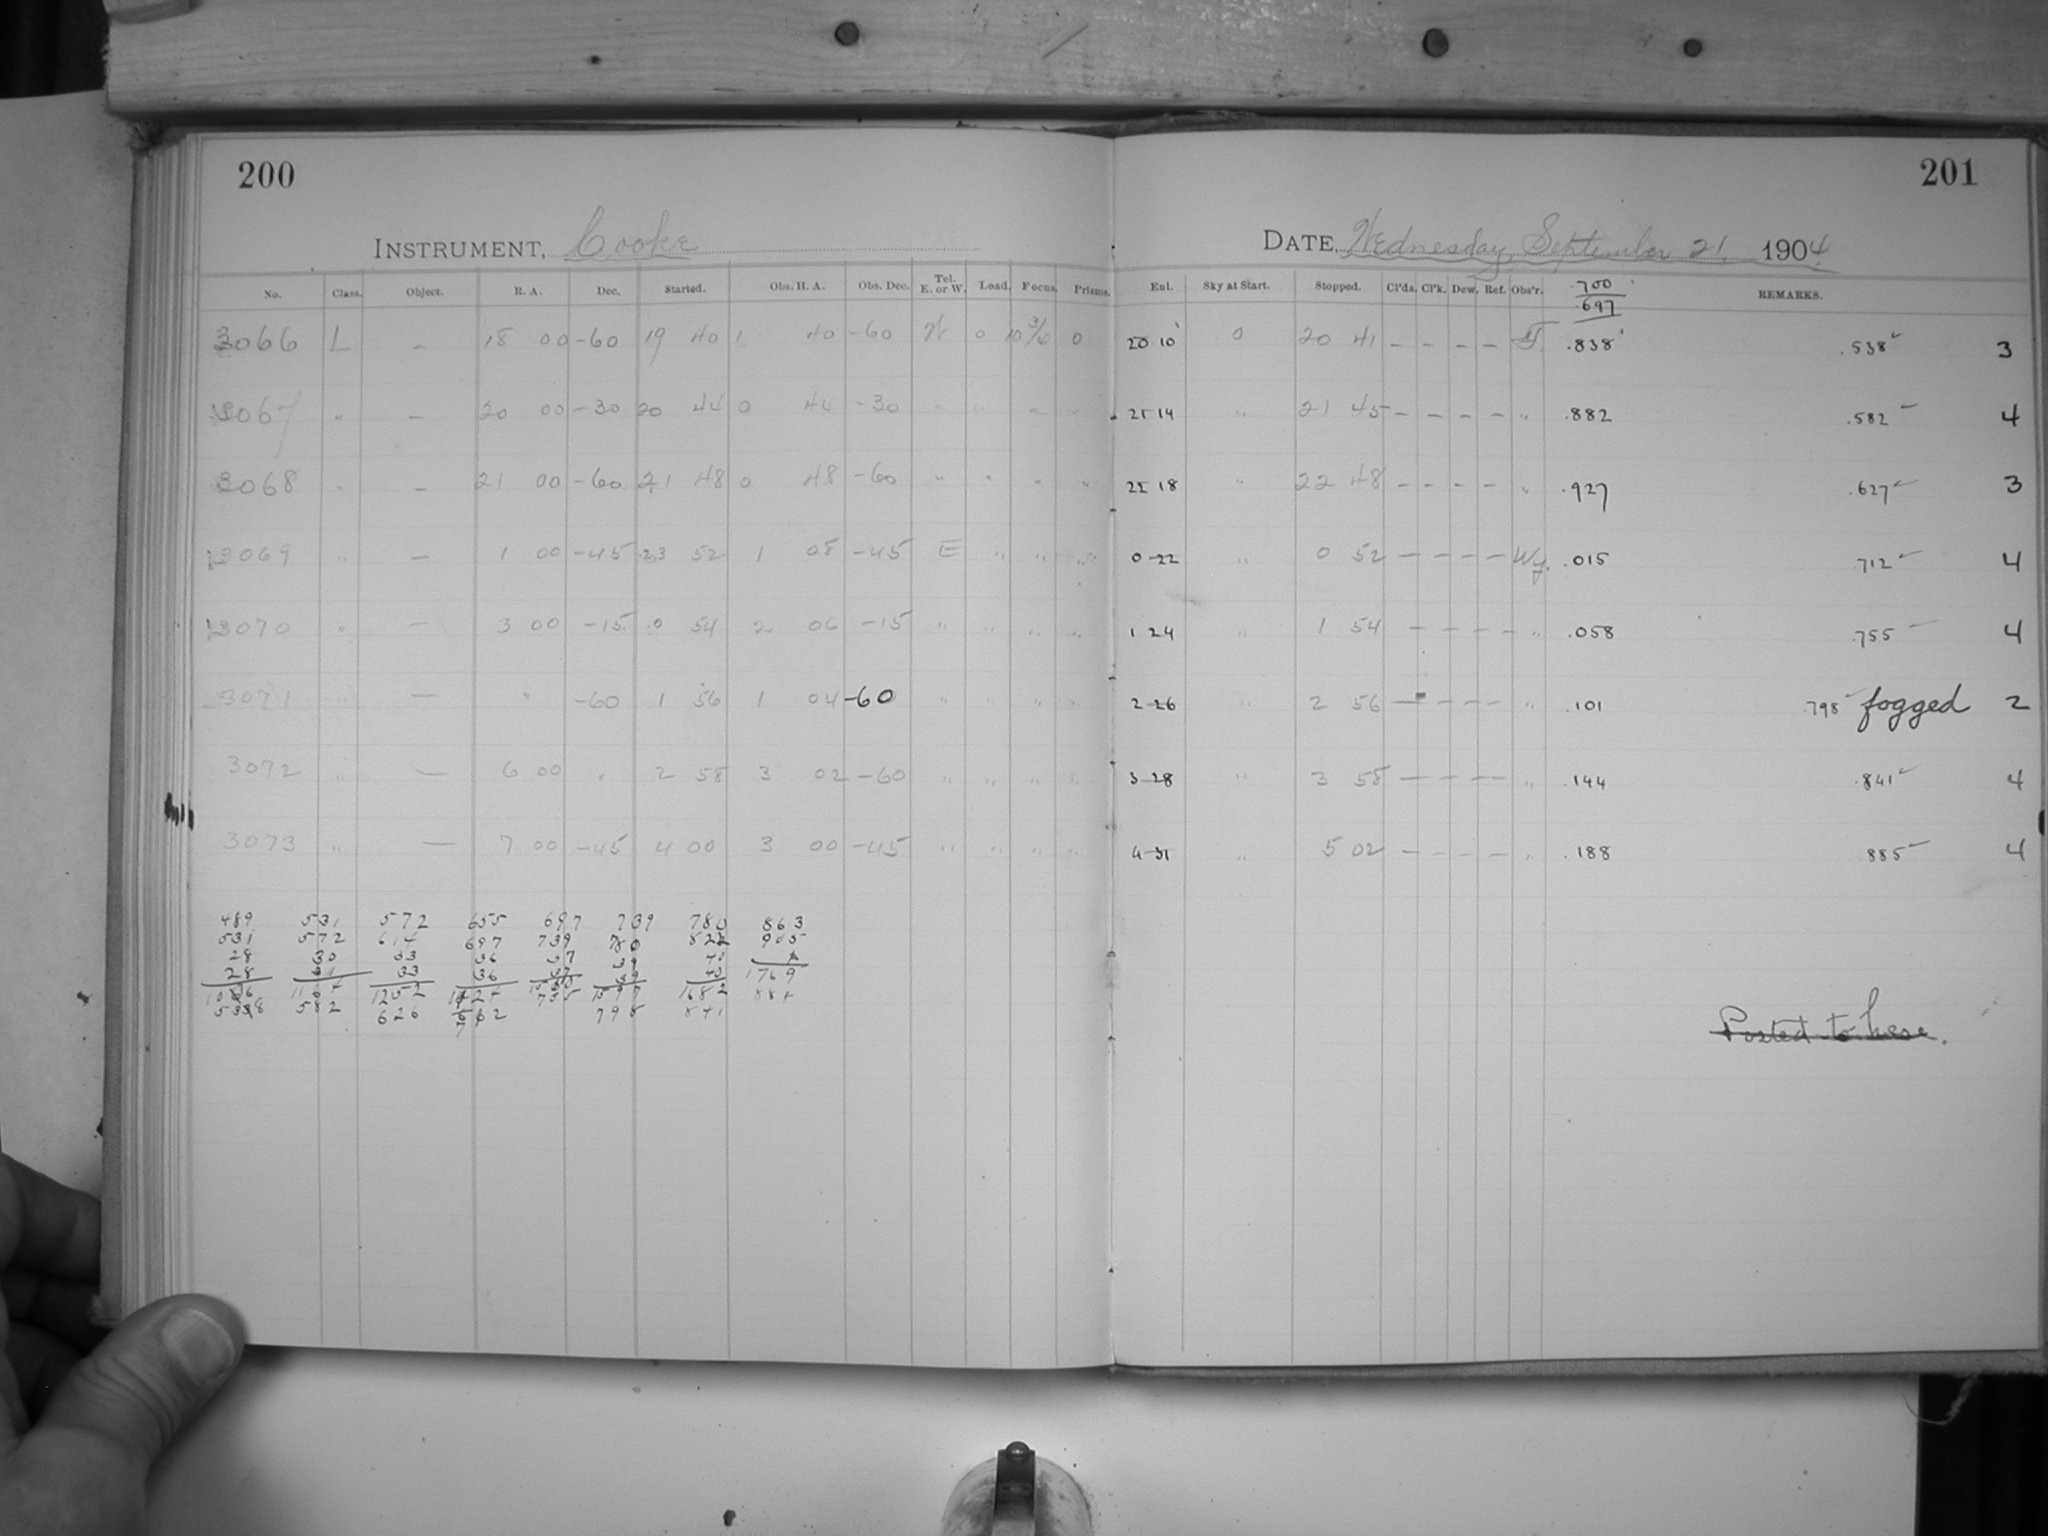 200
201
INSTRUMENT, Cooke
DATE, Wednesday, September 21, 1904
No. Class. Object. R. A. Dec. Started. Obs. H. A. Obs. Dec. Tel. E. or W. Load. Focus. Prisms. Enl. Sky at Start. Stopped. Cl'ds. Cl'k. Dew. Ref. Obs'r. .700 .697 REMARKS.
3066 L – 18 00 -60 19 40 1 40 -60 W 0 10 3/6 0 20 10 0 20 41 – – – – .838 .538 3
3067 " – 20 00 -30 20 44 0 44 -30 " " " " 21 14 " 21 45 – – – – " .882 .582 4
3068 " – 21 00 -60 21 48 0 48 -60 " " " " 22 18 " 22 48 – – – – " .927 .627 3
3069 " – 1 00 -45 23 52 1 08 -45 E " " " 0-22 " 0 52 – – – – Wy. .015 .712 4
3070 " – 3 00 -15 0 54 2 06 -15 " " " " 1 24 " 1 54 – – – – " .058 .755 4
3071 " – " -60 1 56 1 04 -60 " " " " 2-26 " 2 56 – – – – " .101 .798 fogged 2
3072 " – 6 00 " 2 58 3 02 -60 " " " " 3-28 " 3 58 – – – – " .144 .841 4
3073 " – 7 00 -45 4 00 3 00 -45 " " " " 4-31 " 5 02 – – – – " .188 .885 4
489 531 572 655 697 739 780 863
531 572 614 697 739 780 822 905
28 30 33 36 37 39 40
28 33 36 37 39 40 1769
1252 1597 1682 884
538 582 626 762 755 798 841
Posted to here.